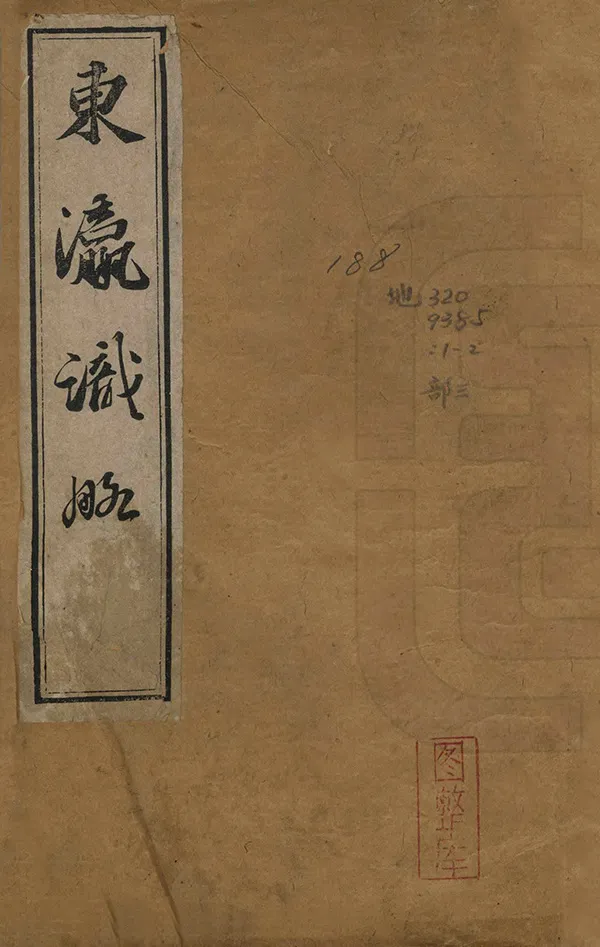 東瀛識略
188
地 320
9385
:1-2
部三
图整庄